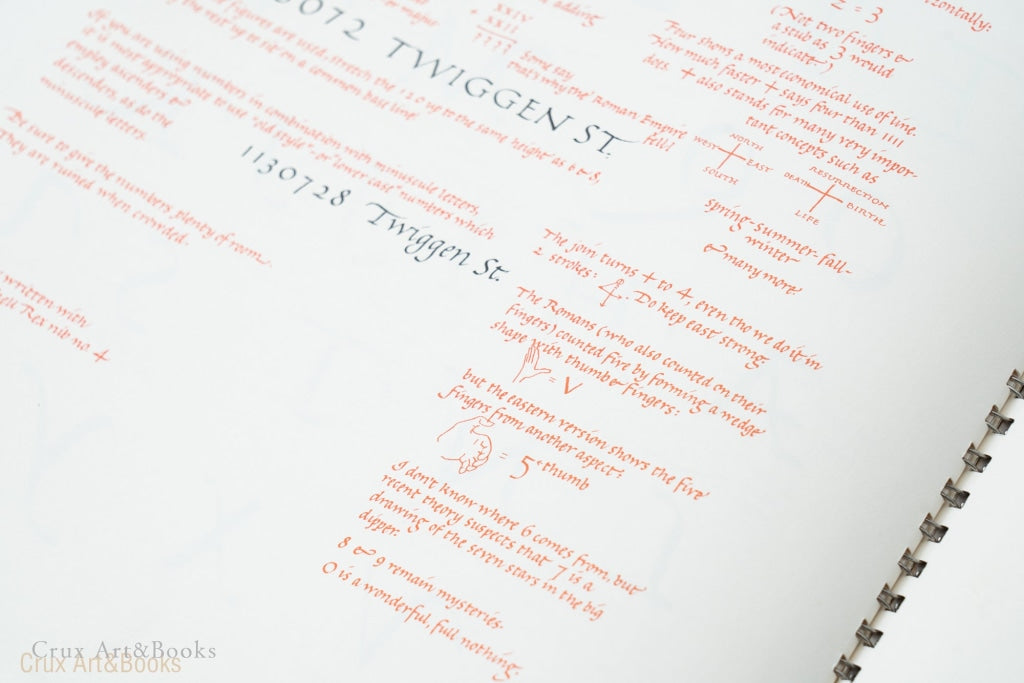 3072 TWIGGEN ST.
figures are used, stretch the 1 2 0 up to the same height as 6 & 8,
the rest up to sit on a common base line
If you are using numbers in combination with minuscule letters,
it is most appropriate to use "old style" or "lower case" numbers which
employ ascenders &
descenders, as do the
minuscule letters.
1130728 Twiggen St.
Be sure to give the numbers plenty of room.
They are ruined when crowded.
written with
Rex nib no. 4
adding
XXIV
+ XXII
????
Some say
that's why the Roman Empire
fell!
zontally:
= 3
(Not two fingers &
a stub as 3 would
indicate)
Four shows a most economical use of line.
How much faster + says four than 1111
does. + also stands for many very impor-
tant concepts such as
NORTH
WEST
EAST
SOUTH
RESURRECTION
DEATH
BIRTH
LIFE
spring-summer-fall-
winter
& many more.
The join turns + to 4, even tho we do it in
2 strokes: 4. Do keep east strong
The Romans (who also counted on their
fingers) counted five by forming a wedge
shape with thumb & fingers:
= V
but the eastern version shows the five
fingers from another aspect:
= 5 thumb
I don't know where 6 comes from, but
recent theory suspects that 7 is a
drawing of the seven stars in the big
dipper.
8 & 9 remain mysteries.
0 is a wonderful, full nothing.
Crux Art&Books
Crux Art&Books